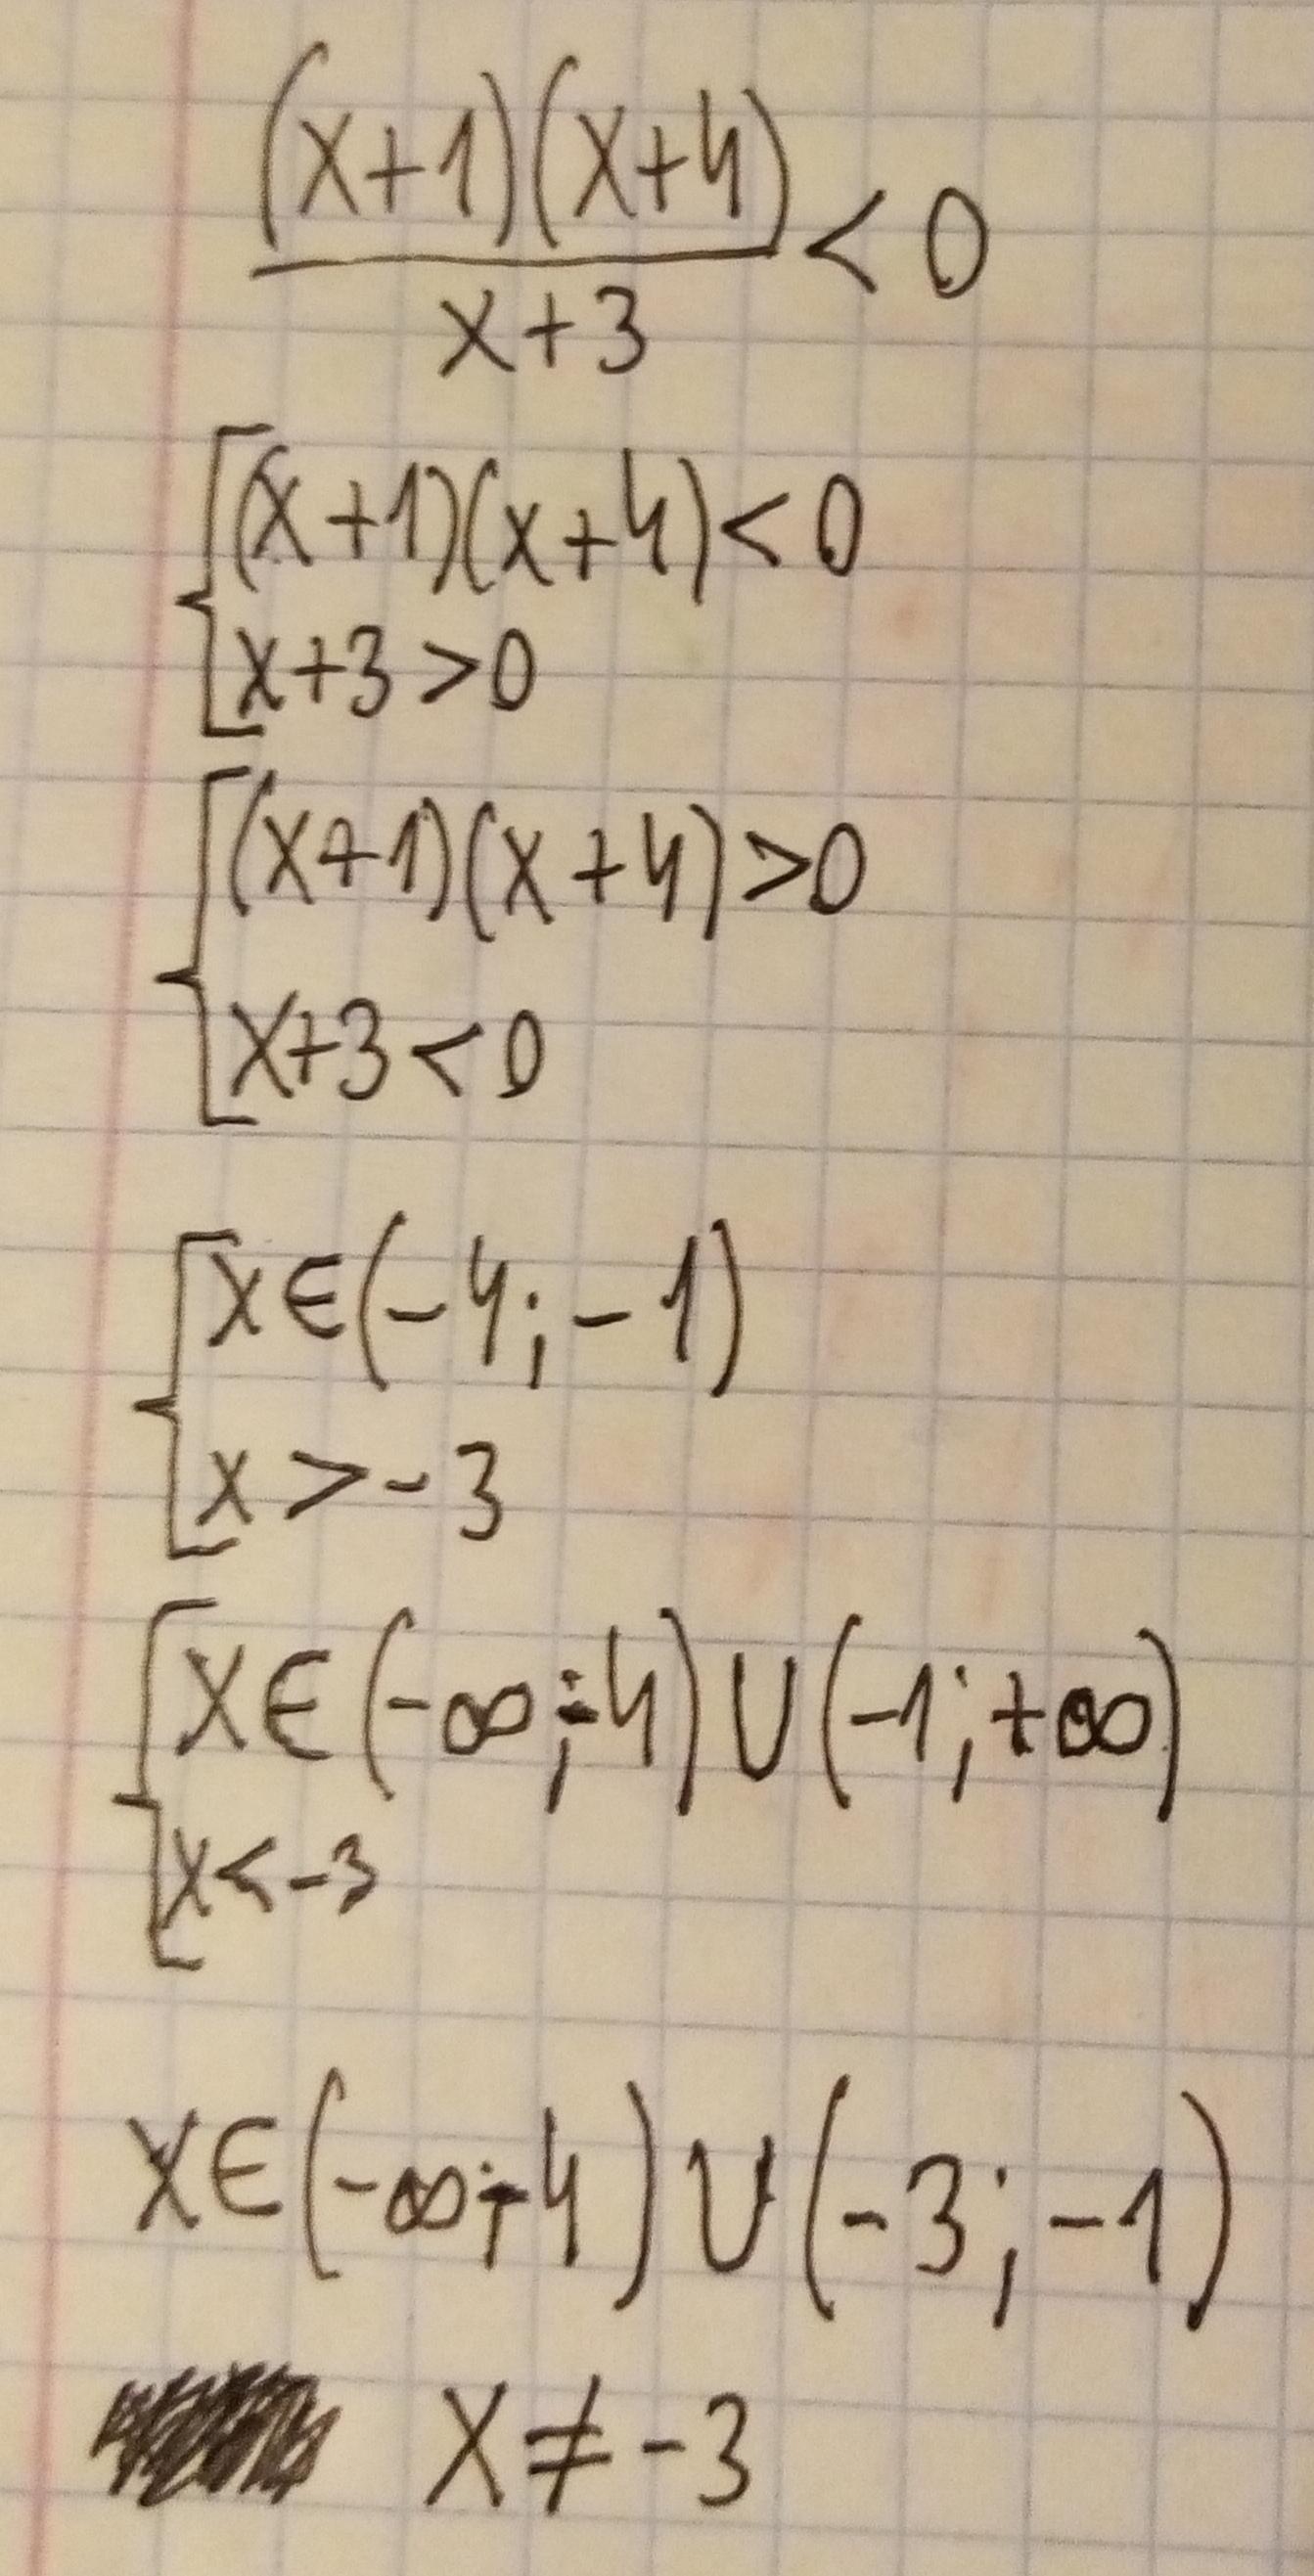 (x+1)(x+4)
x+3
< 0
(x+1)(x+4)<0
x+3>0
(x+1)(x+4)>0
x+3<0
x∈(-4;-1)
x>-3
x∈(-∞;-4)∪(-1;+∞)
x<-3
x∈(-∞;-4)∪(-3;-1)
x≠-3